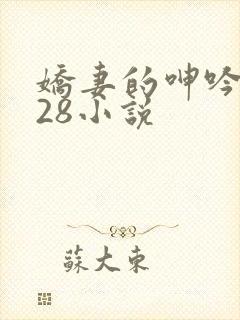 嬌妻的呻吟
28小說
蘇大東